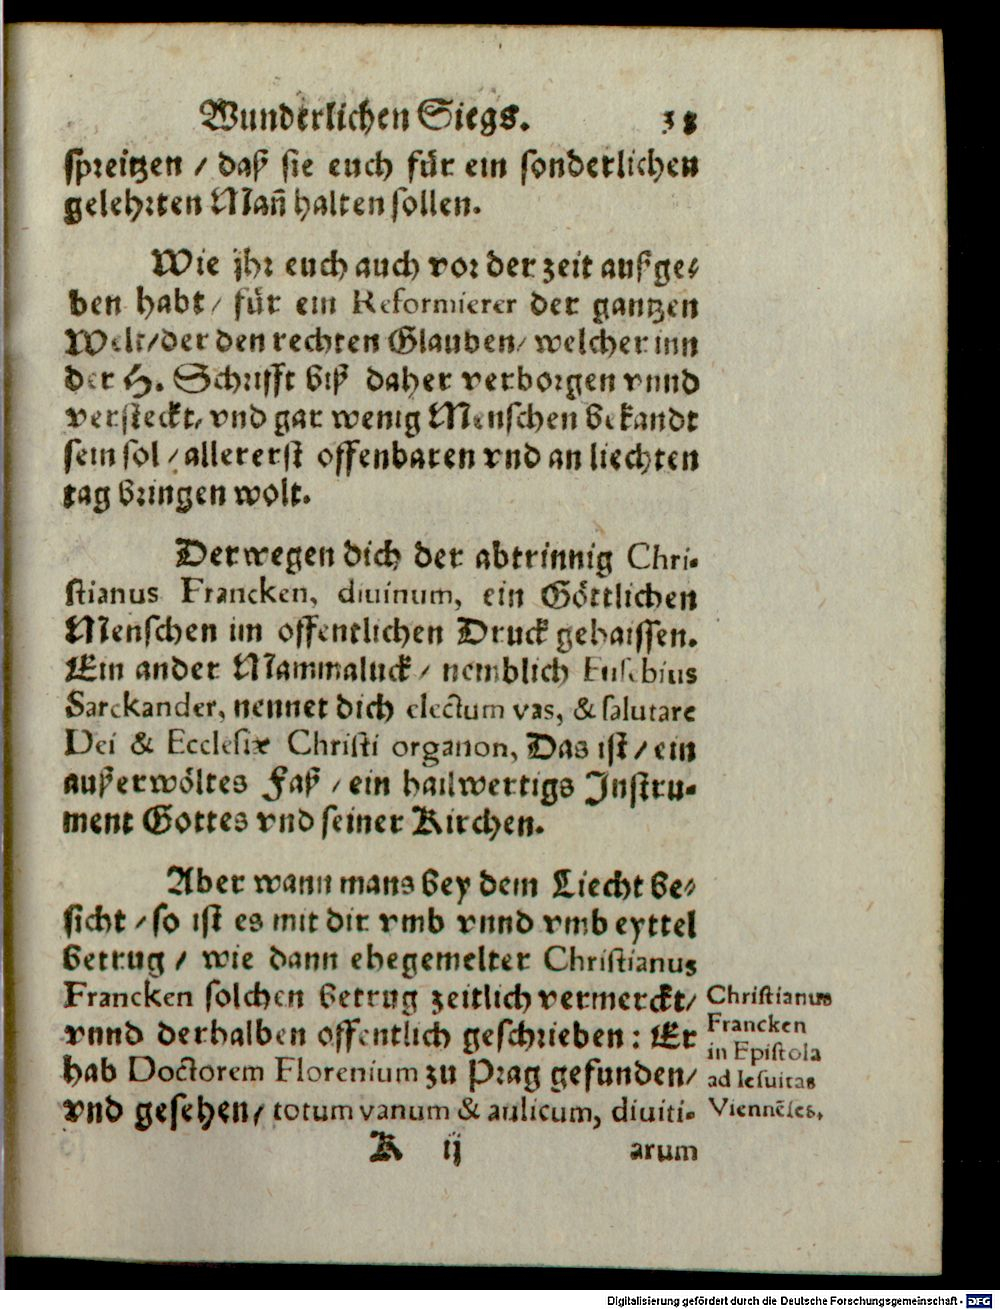 Wunderlichen Siegs. 38
spreitzen / daß sie euch für ein sonderlichen
gelehrten Mañ halten sollen.
Wie jhr euch auch vor der zeit außge-
ben habt / für ein Reformierer der gantzen
Welt / der den rechten Glauben / welcher inn
der H. Schrifft biß daher verborgen vnnd
versteckt, vnd gar wenig Menschen bekandt
sein sol / allererst offenbaren vnd an liechten
tag bringen wolt.
Derwegen dich der abtrinnig Chri-
stianus Francken, diuinum, ein Göttlichen
Menschen im offentlichen Druck gehaissen.
Ein ander Mammaluck / nemblich Eusebius
Sarckander, nennet dich electum vas, & salutare
Dei & Ecclesiæ Christi organon, Das ist / ein
außerwöltes Faß / ein hailwertigs Instru-
ment Gottes vnd seiner Kirchen.
Aber wann mans bey dem Liecht be-
sicht / so ist es mit dir vmb vnnd vmb eyttel
betrug / wie dann ehegemelter Christianus
Francken solchen betrug zeitlich vermerckt /
vnnd derhalben offentlich geschrieben: Er
hab Doctorem Florenium zu Prag gefunden /
vnd gesehen / totum vanum & aulicum, diuiti-
Christianus
Francken
in Epistola
ad Iesuitas
Viennẽses,
K ij arum
Digitalisierung gefördert durch die Deutsche Forschungsgemeinschaft - DFG